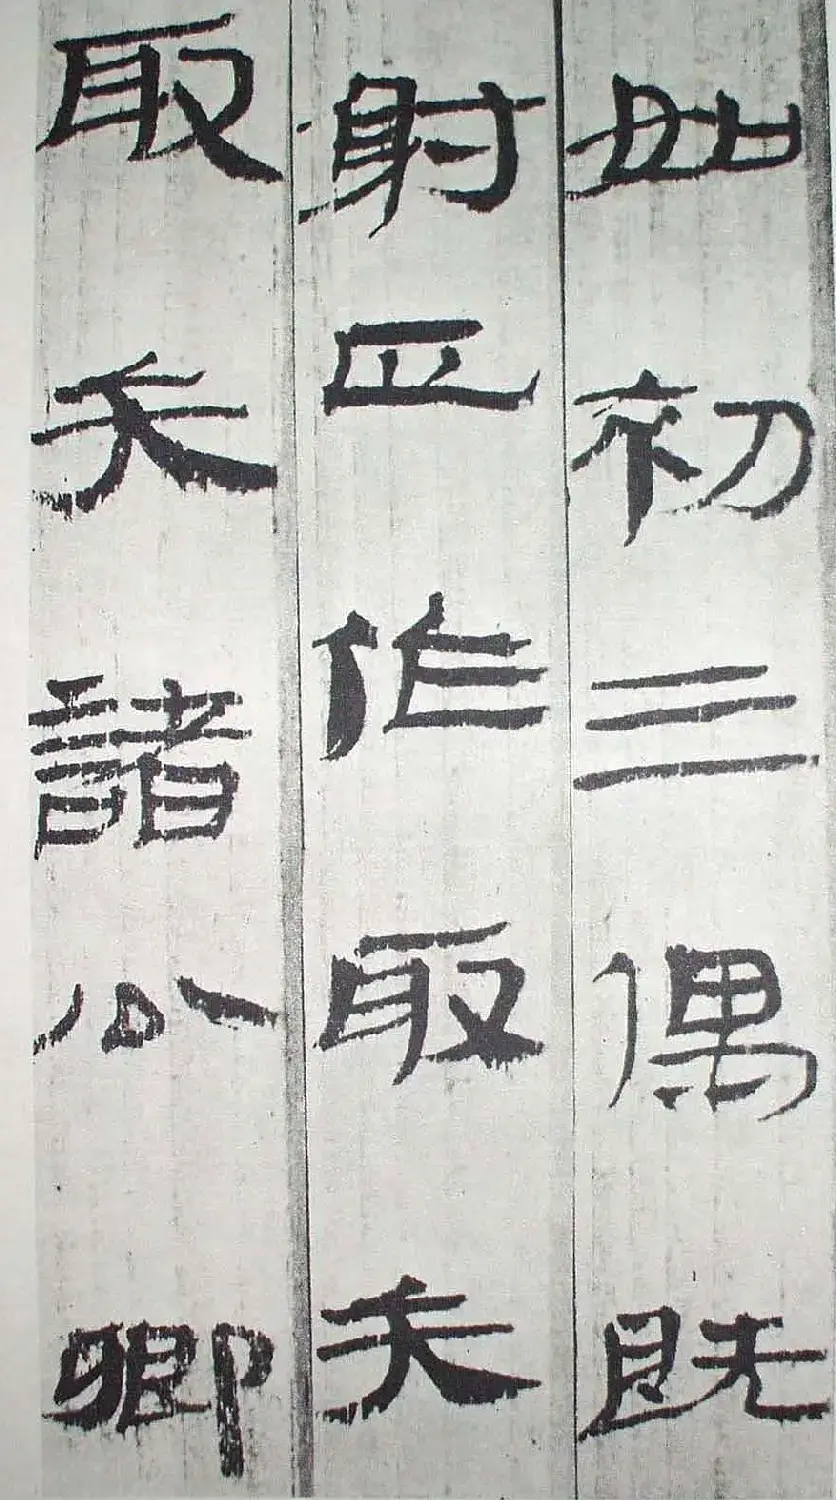 如初三偶既
射正作取矢
取矢諸公卿